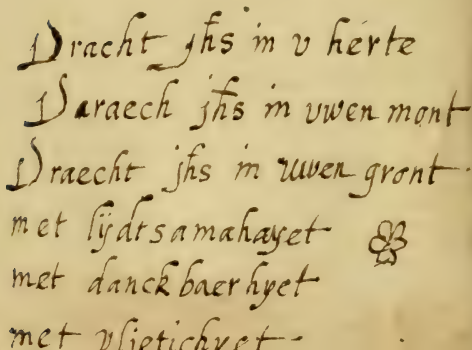 Dracht jhs in v herte
Daraech jhs in vwen mont
Draecht jhs in uwen gront
met lijdtsamahayet
met danckbaerhyet
met vlietichyet